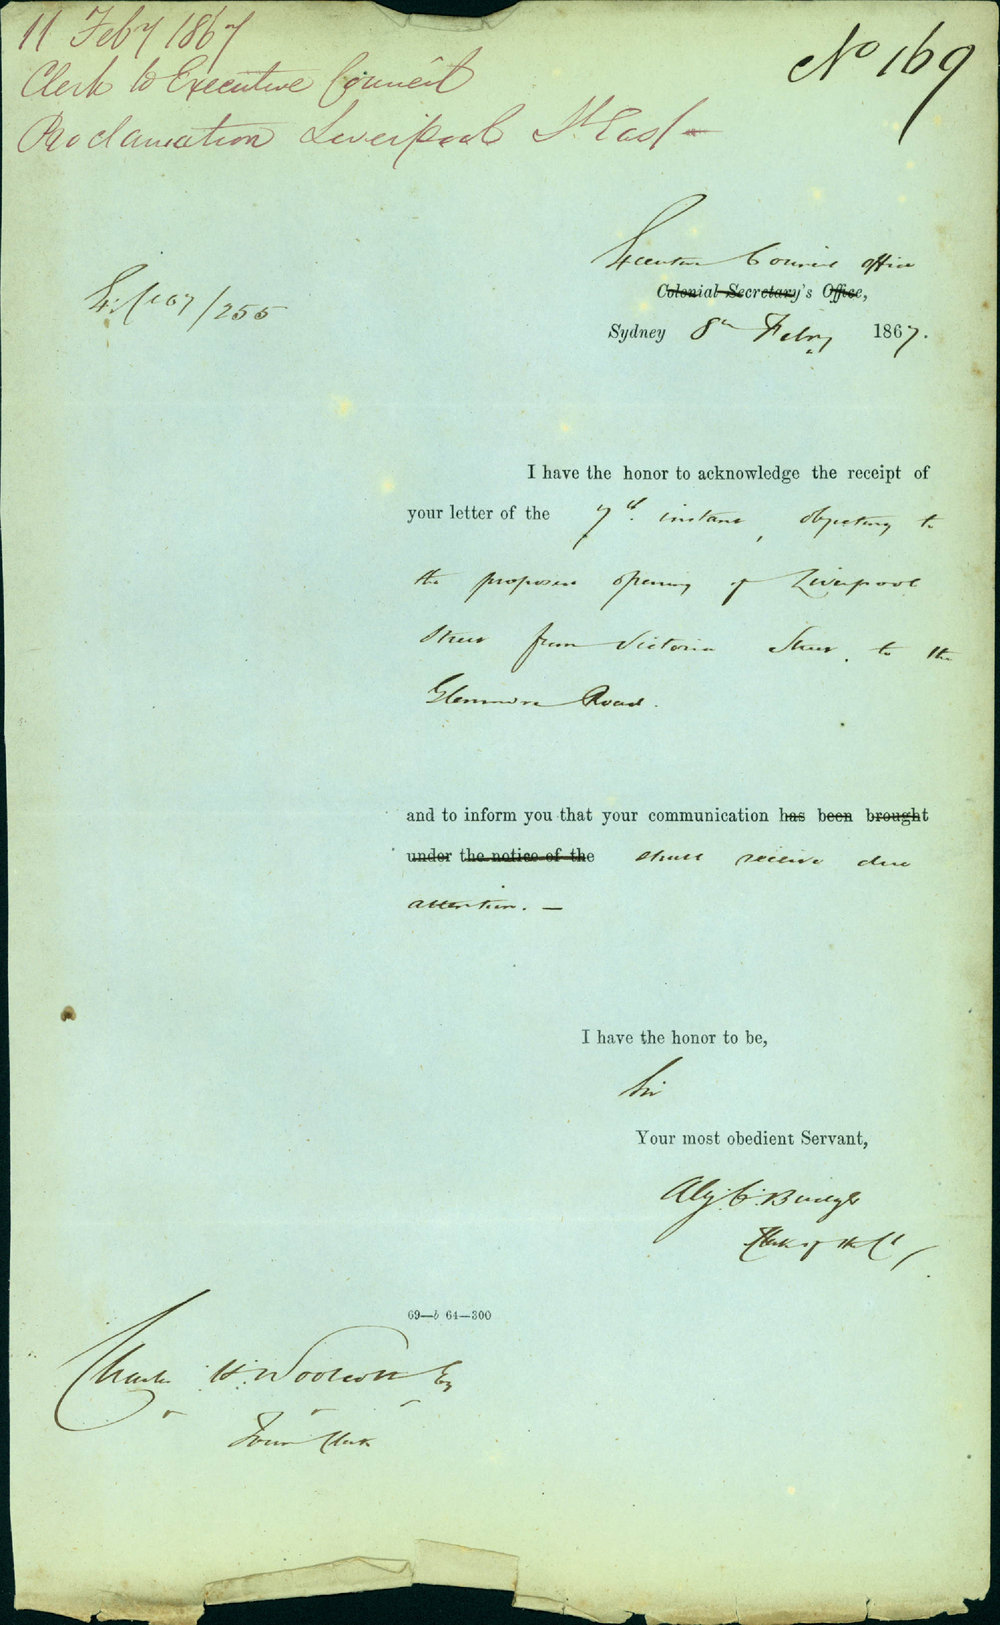 11 Feby 1867
No 169
Clerk to Executive Council
Proclamation Liverpool St East
Executive Council Office
Colonial Secretary's Office,
67/255
Sydney 8th Feby 1867.
I have the honor to acknowledge the receipt of
your letter of the 7th. instant, objecting to
the proposed opening of Liverpool
Street from Victoria Street to the
Glenmore Road.
and to inform you that your communication has been brought
under the notice of the shall receive due
attention. —
I have the honor to be,
Sir
Your most obedient Servant,
Alex. C. Budge
Clerk of the Cl
69—b 64—300
Charles H. Woolcott Esq
Town Clerk